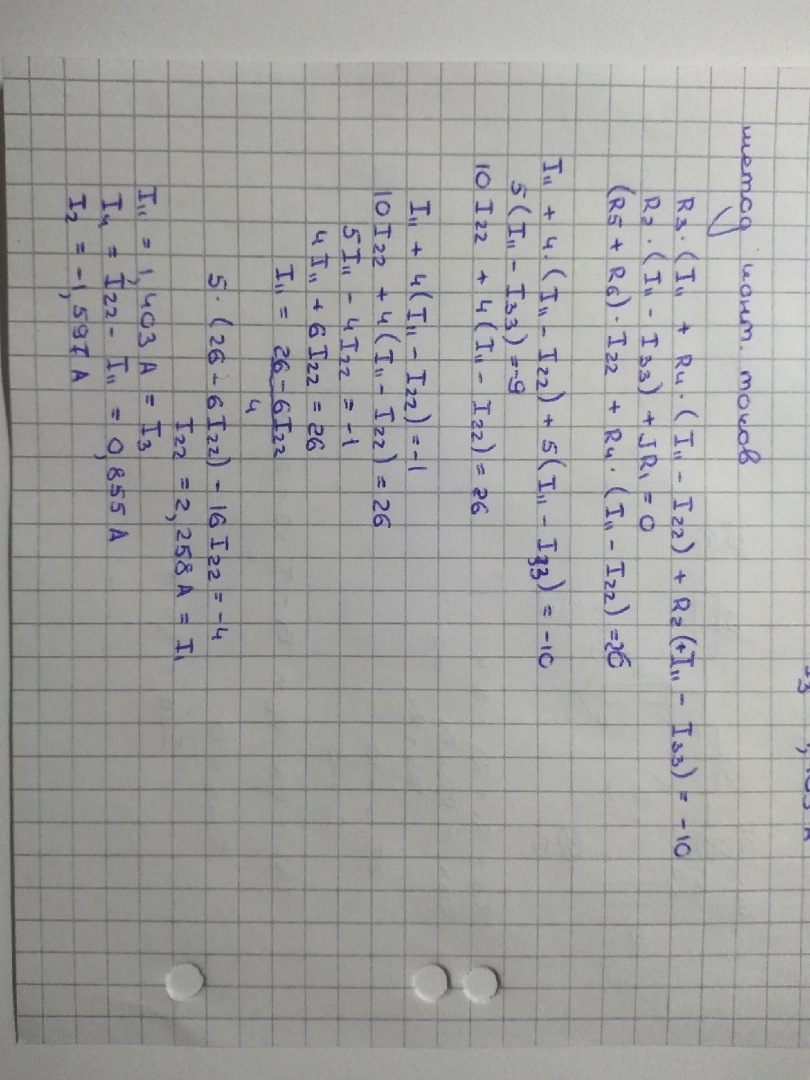 метод конт. токов
R3·(I11 + R4·(I11 - I22) + R2(+I11 - I33) = -10
R2·(I11 - I33) + JR1 = 0
(R5 + R6)·I22 + R4·(I11 - I22) = 26
I11 + 4·(I11 - I22) + 5(I11 - I33) = -10
5(I11 - I33) = -9
10 I22 + 4(I11 - I22) = 26
I11 + 4(I11 - I22) = -1
10 I22 + 4(I11 - I22) = 26
5I11 - 4I22 = -1
4I11 + 6I22 = 26
I11 = 26 - 6I22
4
5·(26 - 6I22) - 16I22 = -4
I22 = 2,258A = I1
I11 = 1,403 A = I3
I4 = I22 - I11 = 0,855 A
I2 = -1,597 A